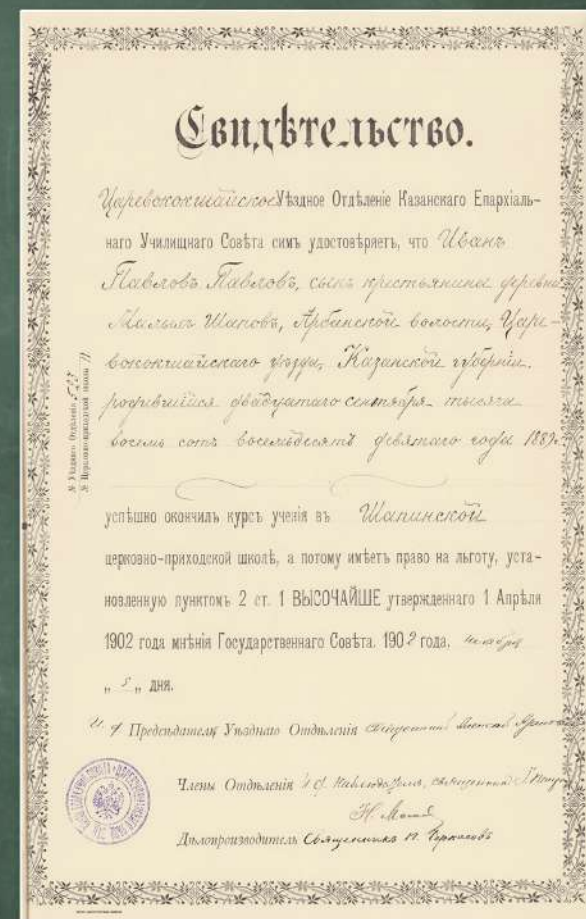 Свидѣтельство.
Царевококшайское Уѣздное Отдѣленіе Казанскаго Епархіаль-
наго Училищнаго Совѣта симъ удостовѣряетъ, что Иванъ
Павловъ Павловъ, сынъ крестьянина деревни
Малыхъ Шаповъ, Арбинской волости, Царе-
вококшайскаго уѣзда, Казанской губерніи.
родившійся двадцатаго сентября тысяча
восемь сотъ восемьдесятъ девятаго года 1889.
№ Уѣзднаго Отдѣленія 527
№ Церковно-приходской школы 11
успѣшно окончилъ курсъ ученія въ Шапинской
церковно-приходской школѣ, а потому имѣетъ право на льготу, уста-
новленную пунктомъ 2 ст. 1 ВЫСОЧАЙШЕ утвержденнаго 1 Апрѣля
1902 года мнѣнія Государственнаго Совѣта. 1902 года,
„ 5 „ дня.
И. д. Предсѣдателя Уѣзднаго Отдѣленія священникъ
Члены Отдѣленія и. д. Наблюдателя, священникъ
Дѣлопроизводитель Священникъ